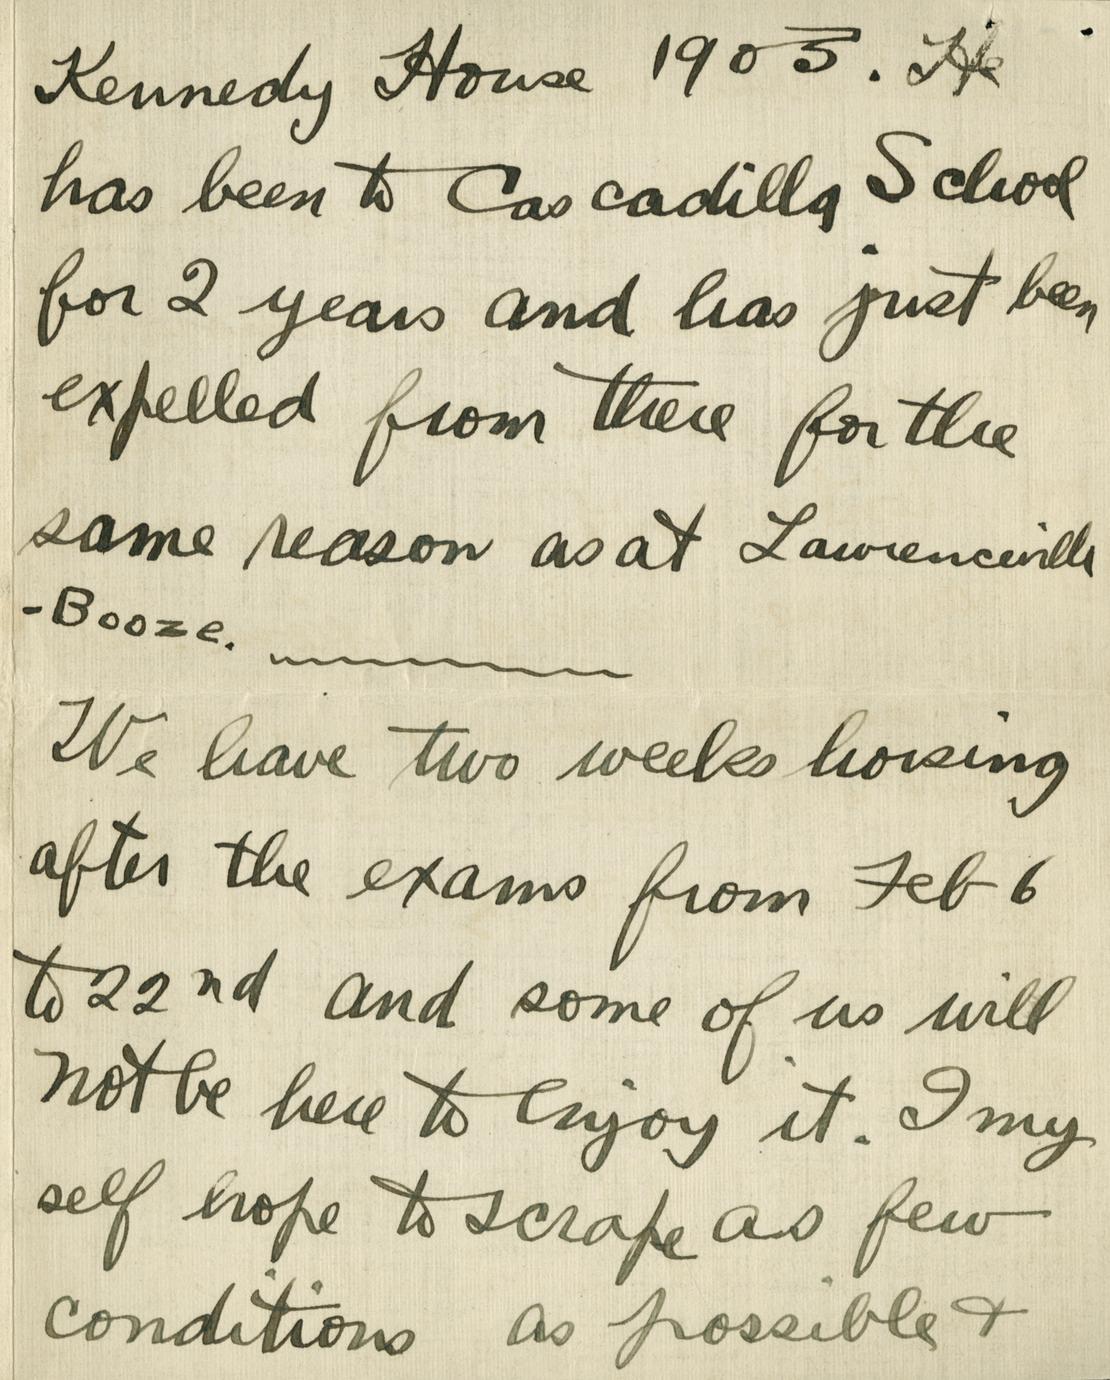 Kennedy House 1903. He
has been to Cascadilla School
for 2 years and has just been
expelled from there for the
same reason as at Lawrenceville
- Booze.
We have two weeks horsing
after the exams from Feb 6
to 22nd and some of us will
not be here to enjoy it. I my
self hope to scrape as few
conditions as possible +